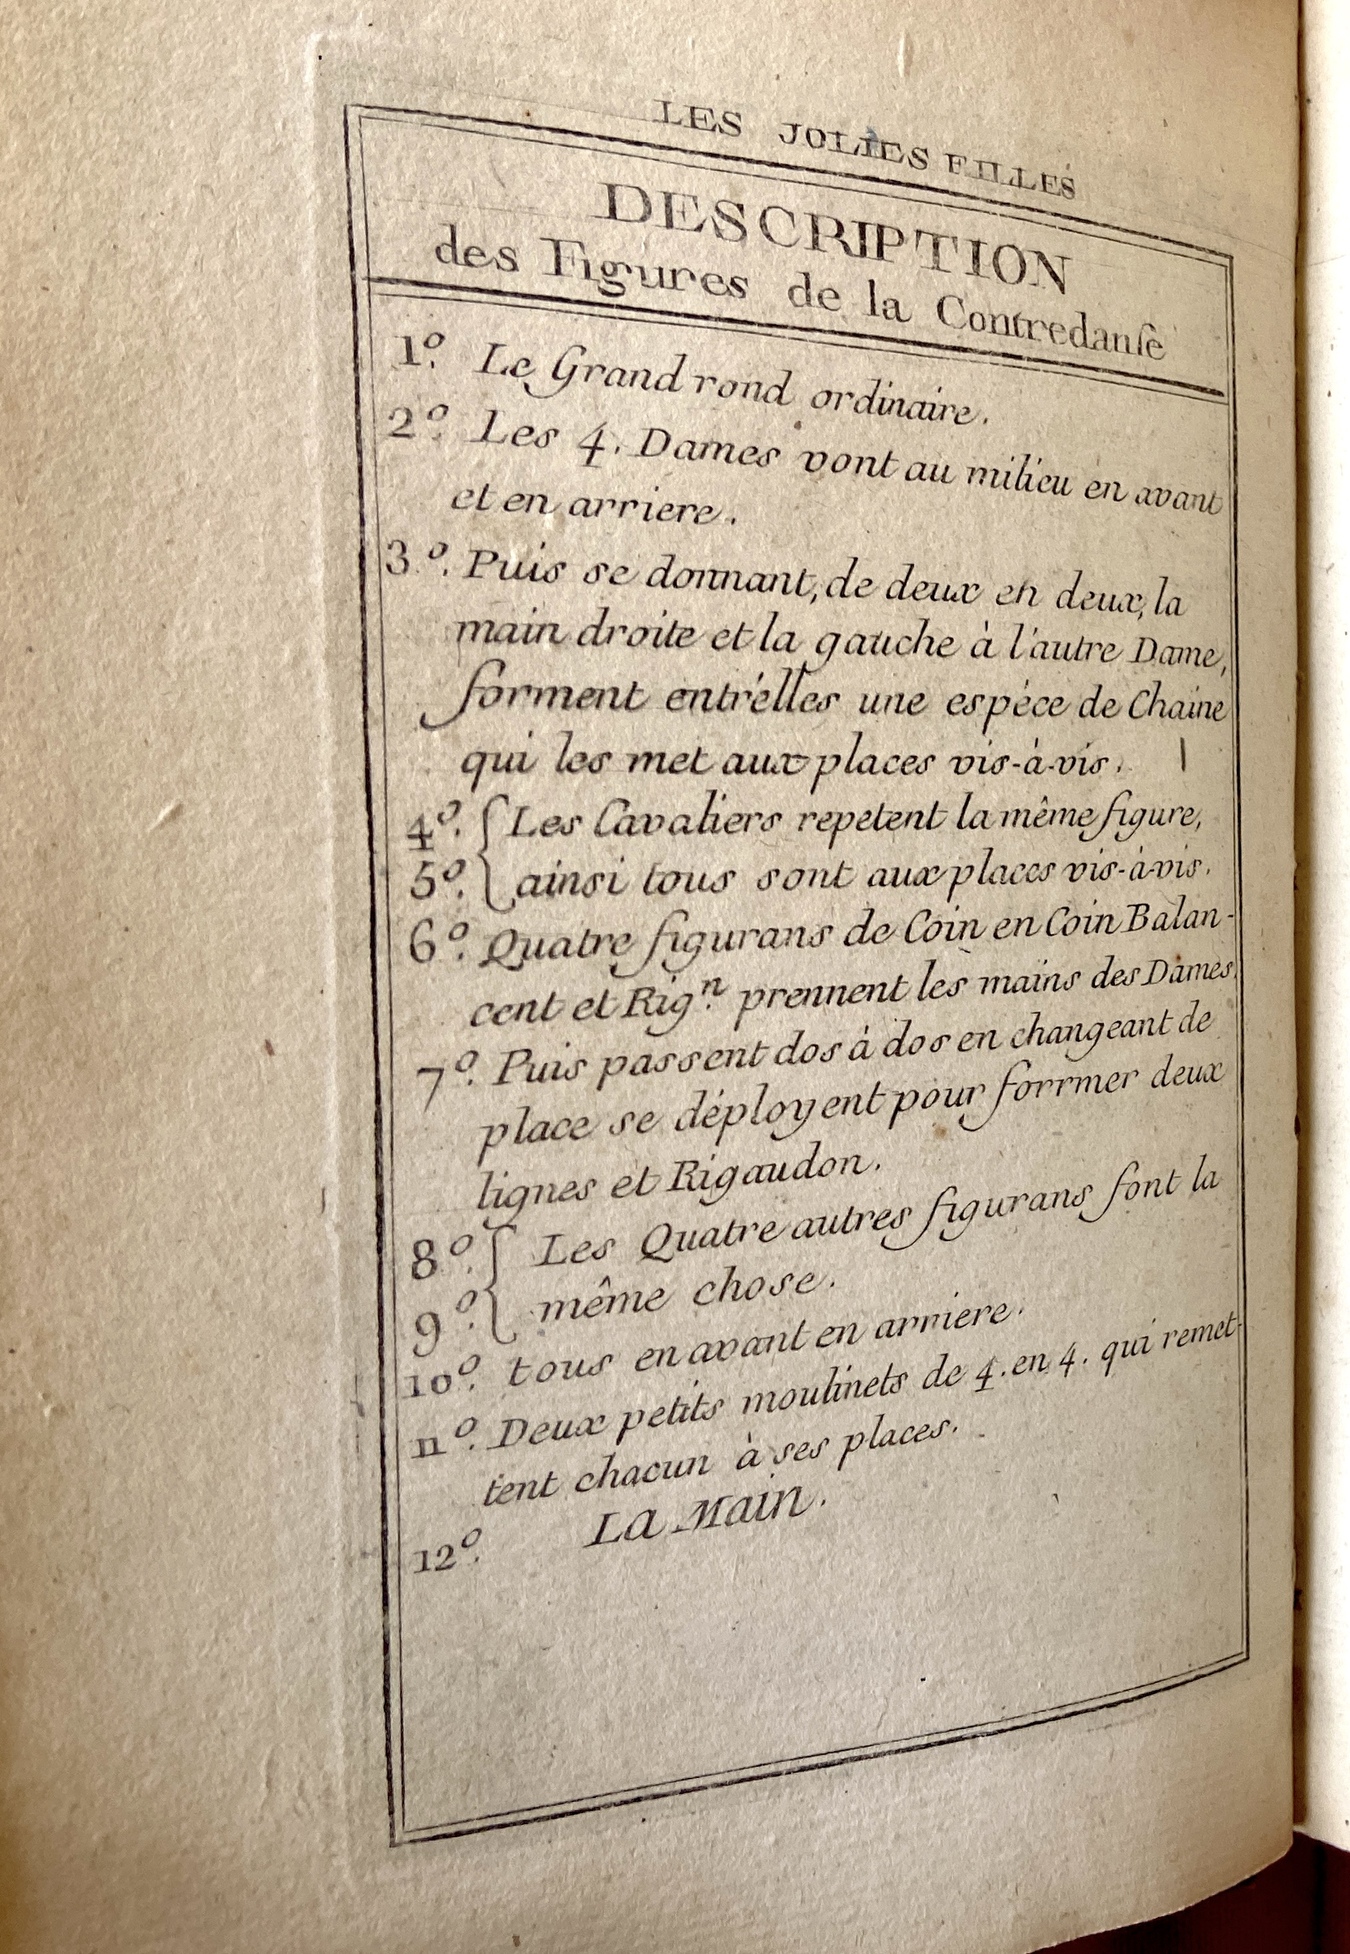 LES JOLIES FILLES
DESCRIPTION
des Figures de la Contredanſe
1.º Le Grand rond ordinaire.
2.º Les 4. Dames vont au milieu en avant
et en arriere.
3.º Puis se donnant, de deux en deux, la
main droite et la gauche à l'autre Dame,
forment entr'élles une espéce de Chaine
qui les met aux places vis-à-vis.
4.º Les Cavaliers repetent la même figure,
5.º ainsi tous sont aux places vis-à-vis.
6.º Quatre figurans de Coin en Coin Balan-
cent et Rig.n prennent les mains des Dames.
7.º Puis passent dos à dos en changeant de
place se déployent pour forrmer deux
lignes et Rigaudon.
8.º Les Quatre autres figurans font la
9.º même chose.
10.º tous en avant en arriere.
11.º Deux petits moulinets de 4. en 4. qui remet-
tent chacun à ses places.
12.º La Main.